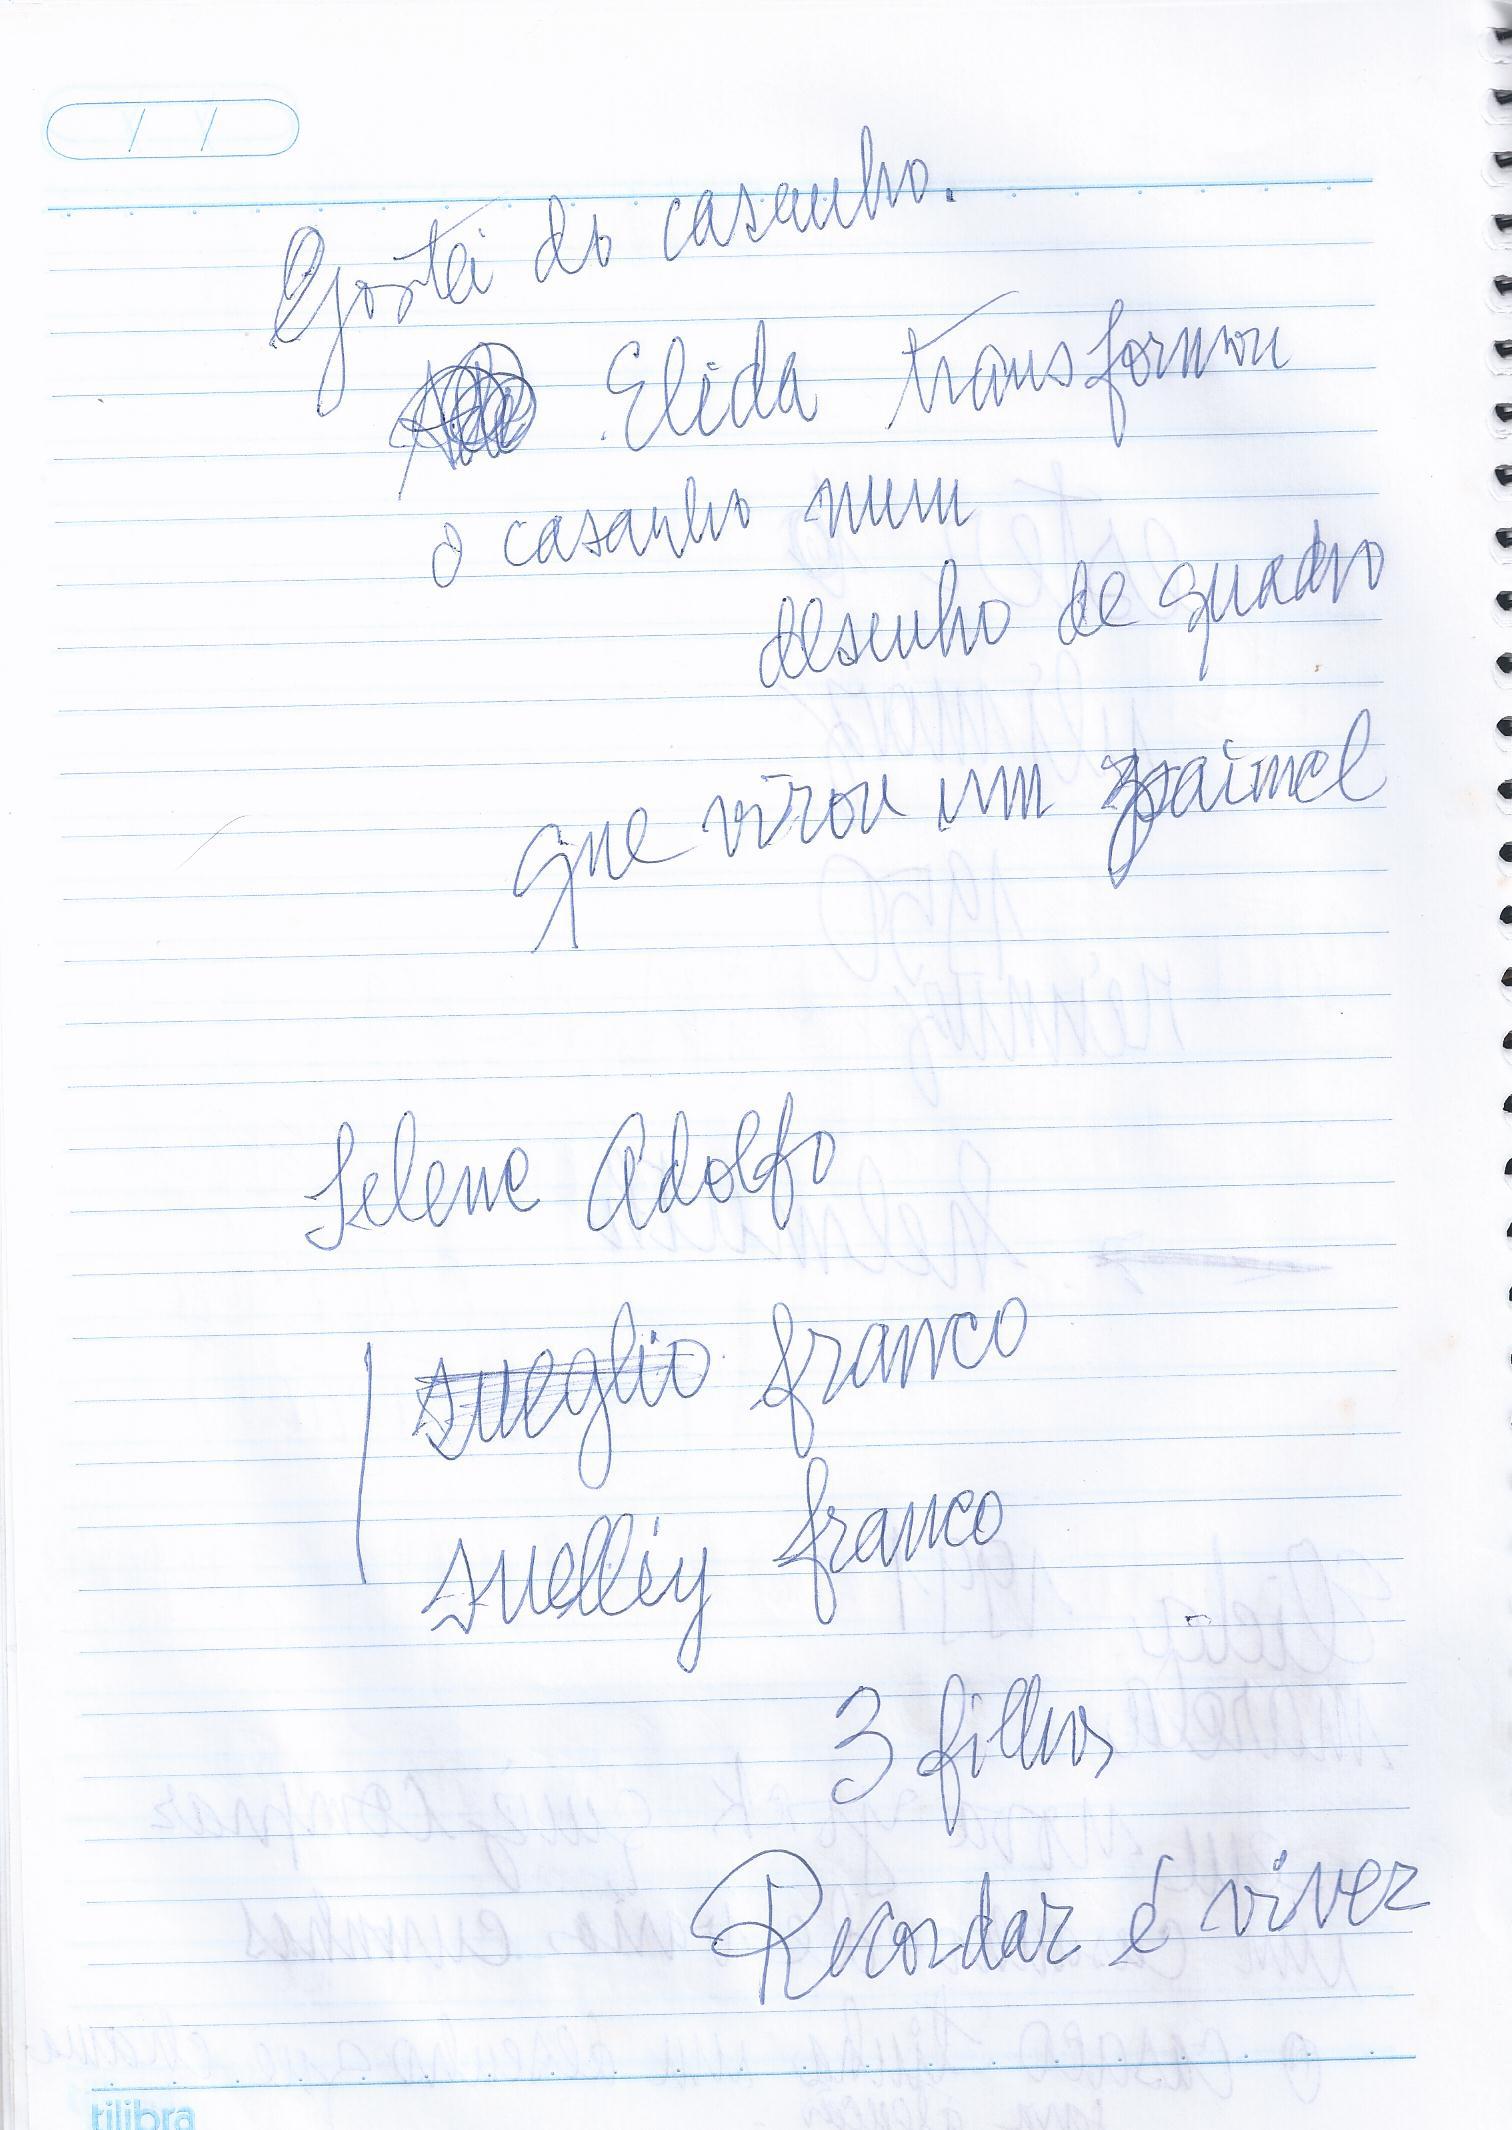 Gostei do casanho.
Elida transformou
o casanho num
desenho de quadro
que virou um painel
Selene Adolfo
sueglio franco
suelliy franco
3 filhos
Recordar é viver
tilibra